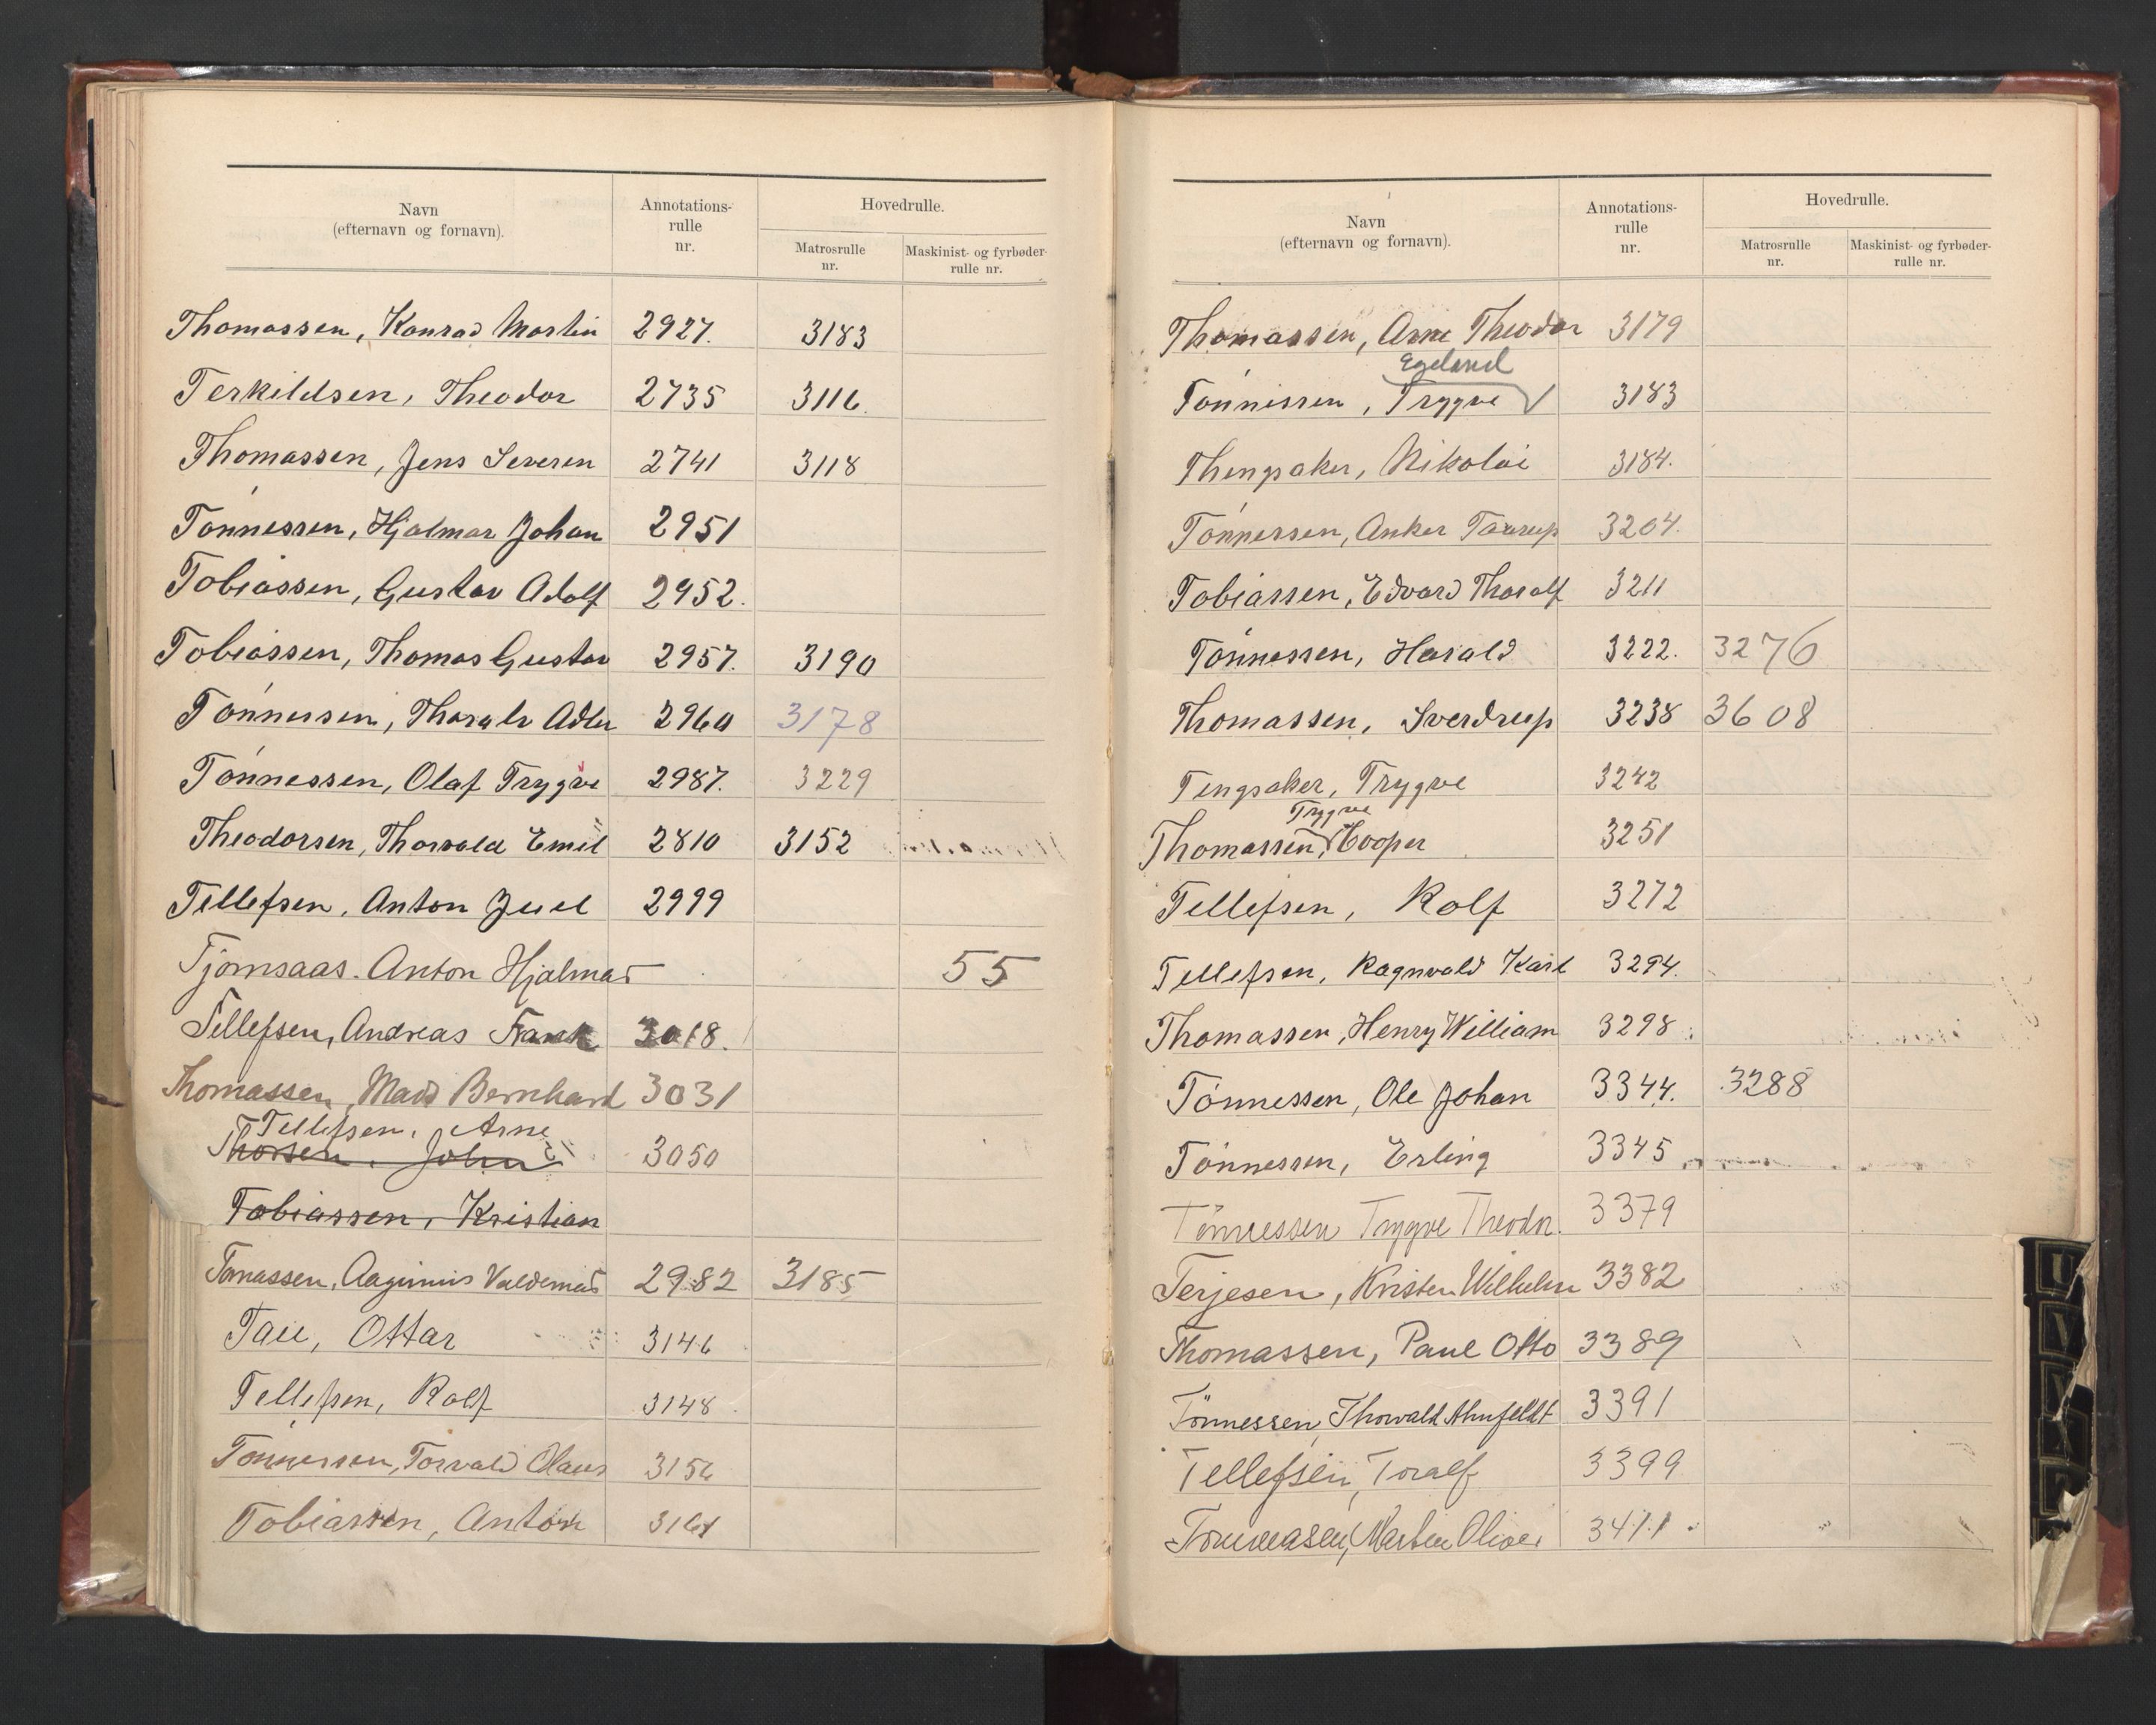 Navn
(efternavn og fornavn).
Annotations-
rulle
nr.
Hovedrulle.
Matrosrulle
nr.
Maskinist- og fyrbøder-
rulle nr.
Thomassen, Konrad Martin 2927. 3183
Terkildsen, Theodor 2735 3116.
Thomassen, Jens Severin 2741 3118
Tónnessen, Hjalmar Johan 2951
Tobiassen, Gustav Adolf 2952.
Tobiassen, Thomas Gustav 2957. 3190
Tónnessen, Thorale Adler 2960 3178
Tónnessen, Olaf Trygve 2987. 3229
Theodorsen, Thorvald Emil 2810 3152
Tellefsen, Anton Juel 2999
Tjomsaas. Anton Hjalmar 55
Tellefsen, Andreas Frank 3018.
Thomassen, Mads Bernhard 3031
Tellefsen, Arne
Thorsen, John 3050
Tobiassen, Kristian
Tomassen, Valdemar 2982 3185
Tau, Ottar 3146
Tellefsen, Rolf 3148
Tonnessen, Torvald Olaus 3156
Tobiassen, Anton 3161
Navn
(efternavn og fornavn).
Annotations-
rulle
nr.
Hovedrulle.
Matrosrulle
nr.
Maskinist- og fyrbøder-
rulle nr.
Thomassen, Arne Theodor 3179
Egeland
Tónnissen, Trygve 3183
Thengsaker, Nikolai 3184.
Tónnessen, Anker Taarup 3204.
Tobiassen, Edvard Thoralf 3211
Tónnessen, Harald 3222. 3276
Thomassen, Sverdrup 3238 3608
Tengsaker, Trygve 3242
Trygve
Thomassen, Cooper 3251
Tellefsen, Rolf 3272
Tellefsen, Ragnvald Karl 3294.
Thomassen, Henry William 3298
Tónnessen, Ole Johan 3344. 3288
Tónnessen, Erling 3345
Tönnessen Trygve Theodor. 3379
Terjesen, Kristen Wilhelm 3382
Thomassen, Paul Otto 3389
Tönnessen, Thorvald Ahnfeldt 3391
Tellefsen, Toralf 3399
Martin Oliver 3411